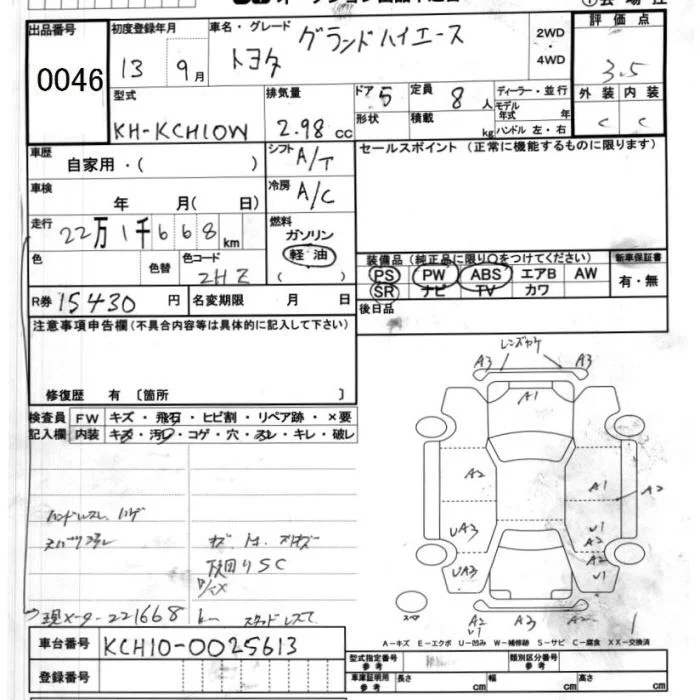 出品番号
0046
初度登録年月
13 9月
車名・グレード
トヨタ グランドハイエース
2WD
・
4WD
評価点
3.5
型式
KH-KCH10W
排気量
2.98 cc
ドア 5
定員 8人
形状
積載 kg
ディーラー・並行
モデル年式 年
ハンドル 左・右
外装 内装
C C
車歴
自家用・( )
シフト A/T
セールスポイント (正常に機能するものに限ります)
車検
年 月( 日)
冷房 A/C
走行
22万1千668km
燃料
ガソリン
軽油
( )
色
色替
色コード
2HZ
装備品 (純正品に限り○をつけてください)
PS PW ABS エアB AW
SR ナビ TV カワ
新車保証書
有・無
R券 15430 円
名変期限 月 日
後日品
注意事項申告欄(不具合内容等は具体的に記入して下さい)
修復歴 有 〔箇所 〕
検査員記入欄
FW キズ・飛石・ヒビ割・リペア跡・×要
内装 キズ・汚レ・コゲ・穴・スレ・キレ・破レ
レンズカケ
A3 A3
A1
A2 A1 A2
UA3 U1
A2
UA3 A2
U1
A2 A3 A2
U1
スペア
下回りSC
現メーター221668km
A-キズ E-エクボ U-凹み W-補修跡 S-サビ C-腐食 XX-交換済
車台番号
KCH10-0025613
登録番号
型式指定番号 参考
類別区分番号 参考
車庫証明用 参考
長さ cm
幅 cm
高さ cm